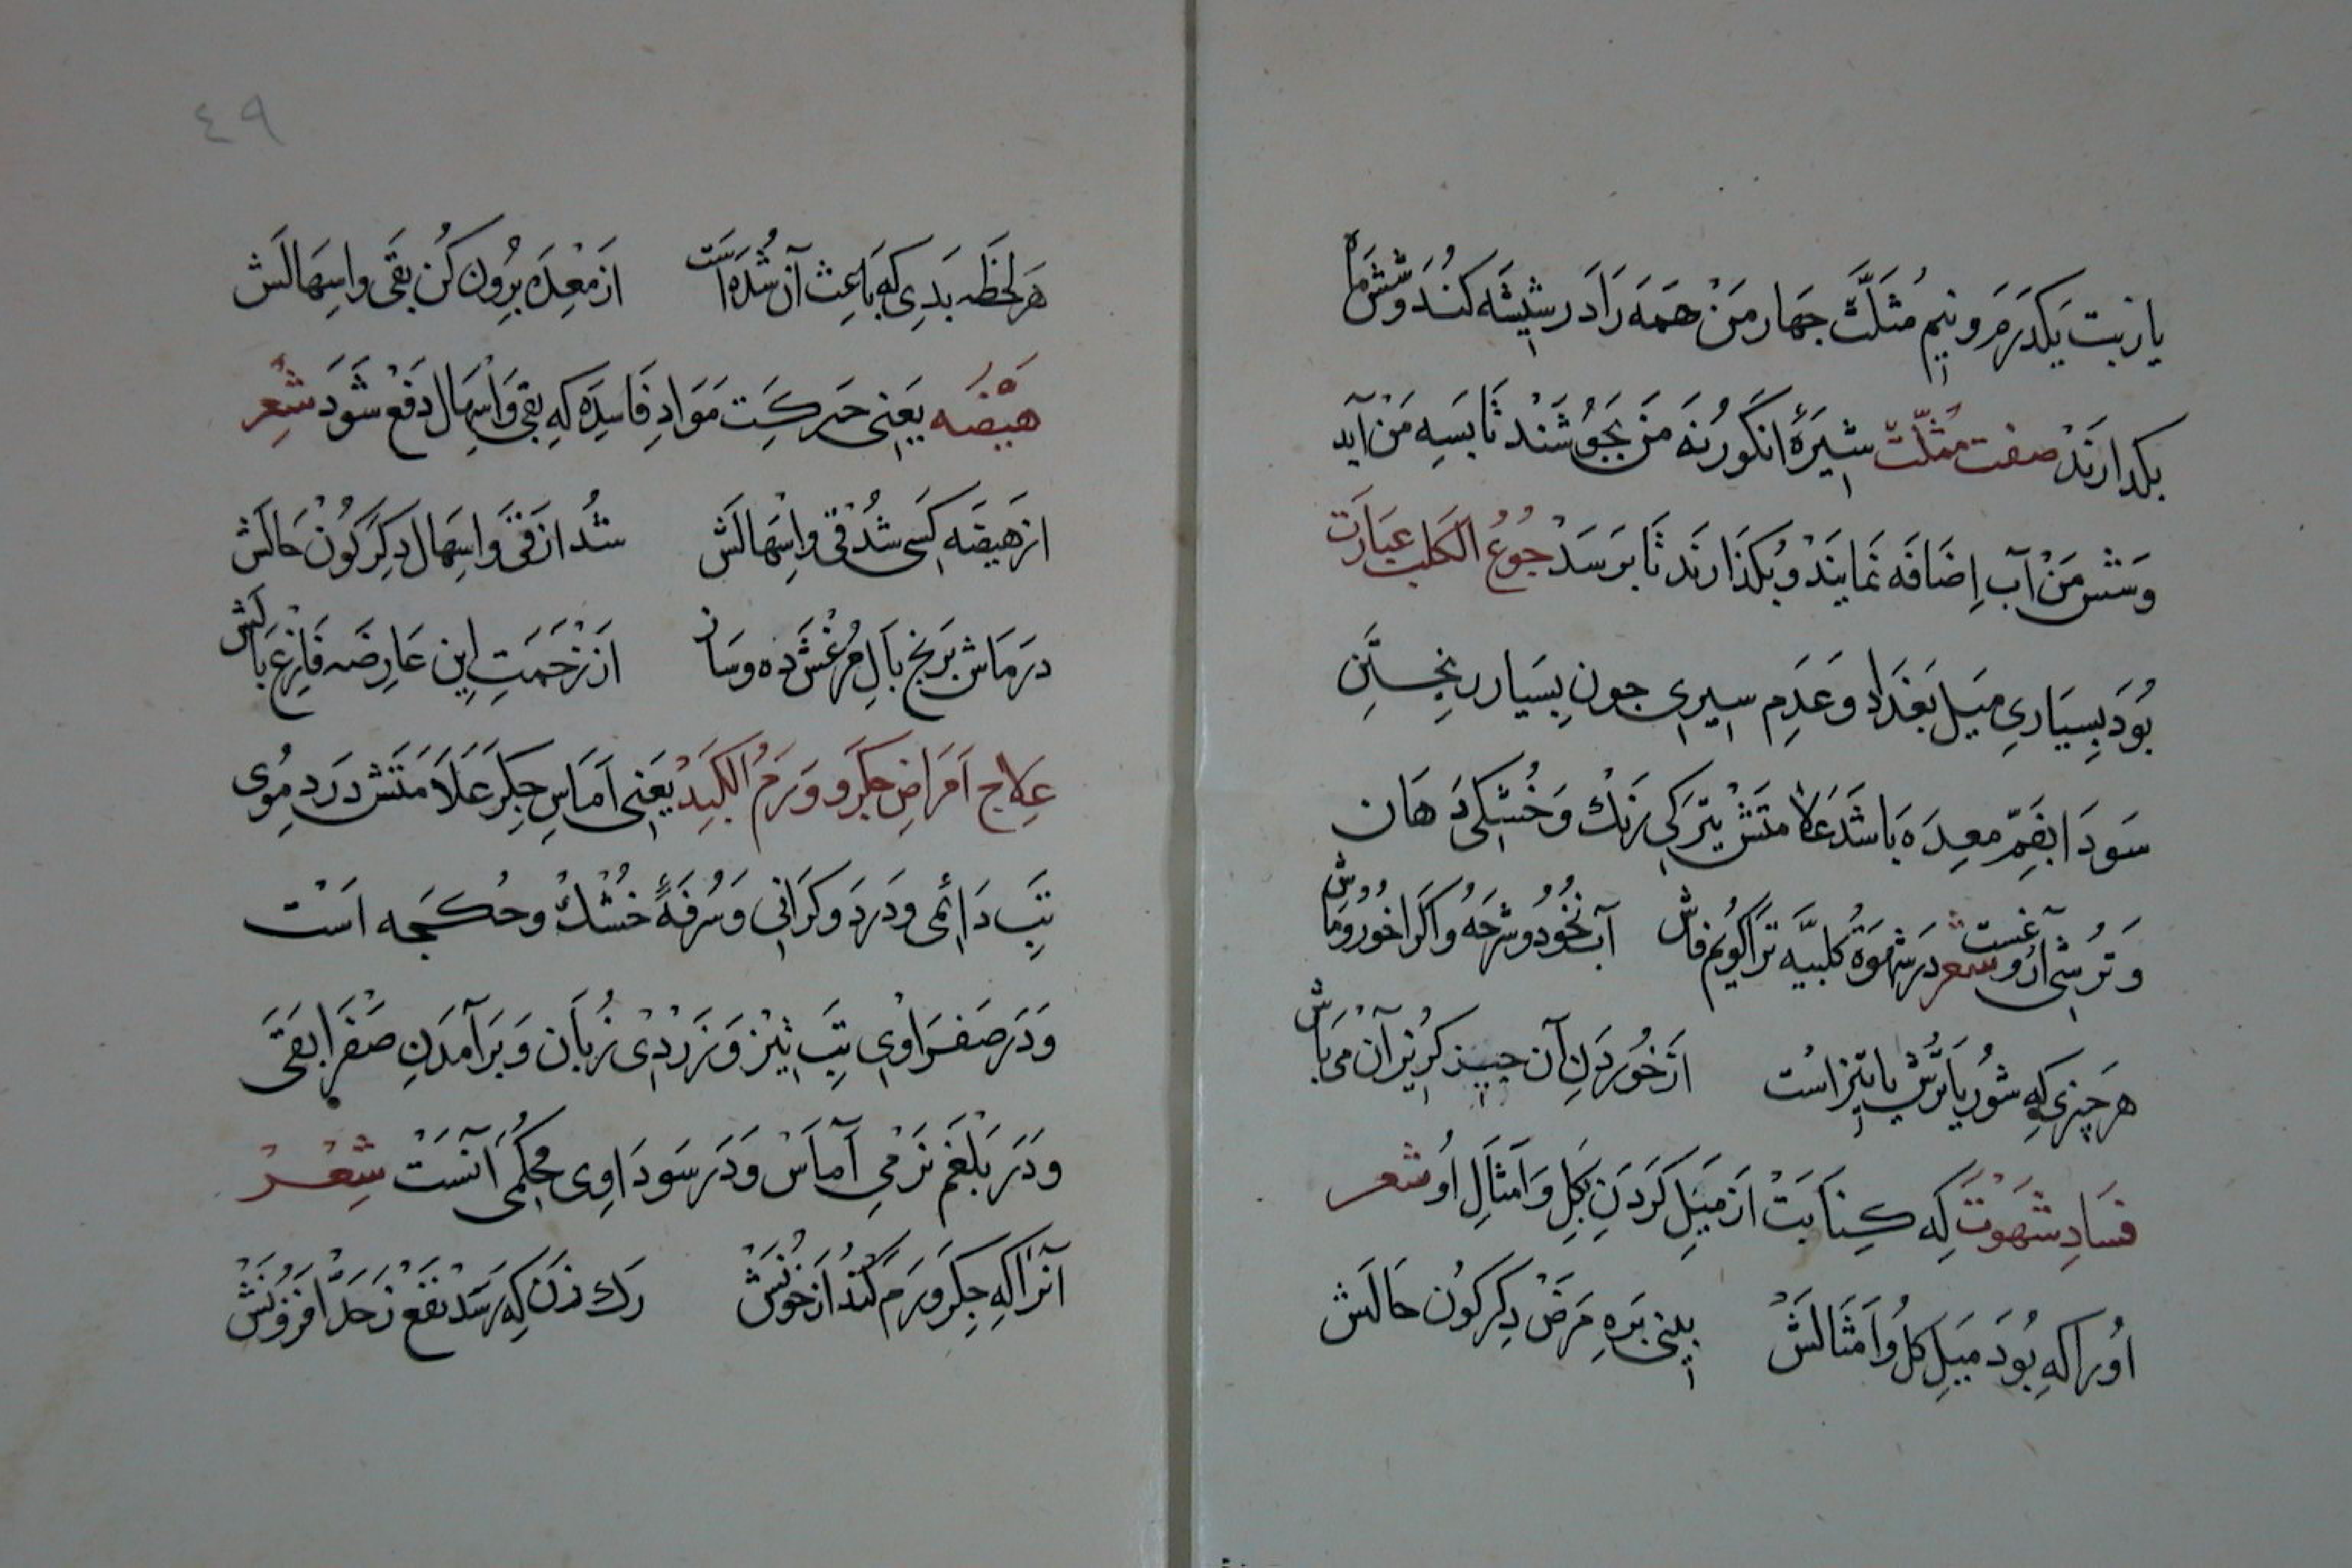 یا زبت یکدرم و نیم مثلث جهار من همه را در شیشه کنند و شش ماه
بکدارند صفت مثلث شیرهٔ انکور نه من بجوشند تا بسه من آید
و شش من آب اضافه نمایند و بکذارند تا برسد جوع الکلب عبارت
بود بسیاری میل بغدا و عدم سیری جون بسیار ریختن
سودا بفم معده باشد علامتش تیرکی رنك و خشکی دهان
و ترشی آروغست شعر در شهوة کلبیه ترا کویم فاش آب نخود و شرحه واکرا خور و ماش
هر جیزی که شور یا ترش یا تیز است از خوردن آن جیز کریزان می باش
فساد شهوت که کنایت از میل کردن بکل و امثال او شعر
او را که بود میل کل و امثالش بینی بره مرض دکرکون حالش
٤٩
هر لحظه بدی که باعث آن شده است از معده برون کن بقی و اسهالش
هیضه یعنی حرکت مواد فاسده که بقی و اسهال دفع شود شعر
از هیضه کسی شد قی و اسهالش شد از قی و اسهال دکرکون حالش
در ماش برنج بال مرغش ده و سان از زحمت این عارضه فارغ بالش
علاج امراض جکر و ورم الکبد یعنی اماس جکر علامتش در دموی
تب دائمی و درد و کرانی و سرفهٔ خشك و حکجه است
و در صفراوی تب تیز و زردی زبان و بر آمدن صفرا بقی
و در بلغم نرمی آماس و در سوداوی محکمی آنست شعر
آنرا که جکر ورم کند از خونش رك زن که رسد نفع ز حد افزونش